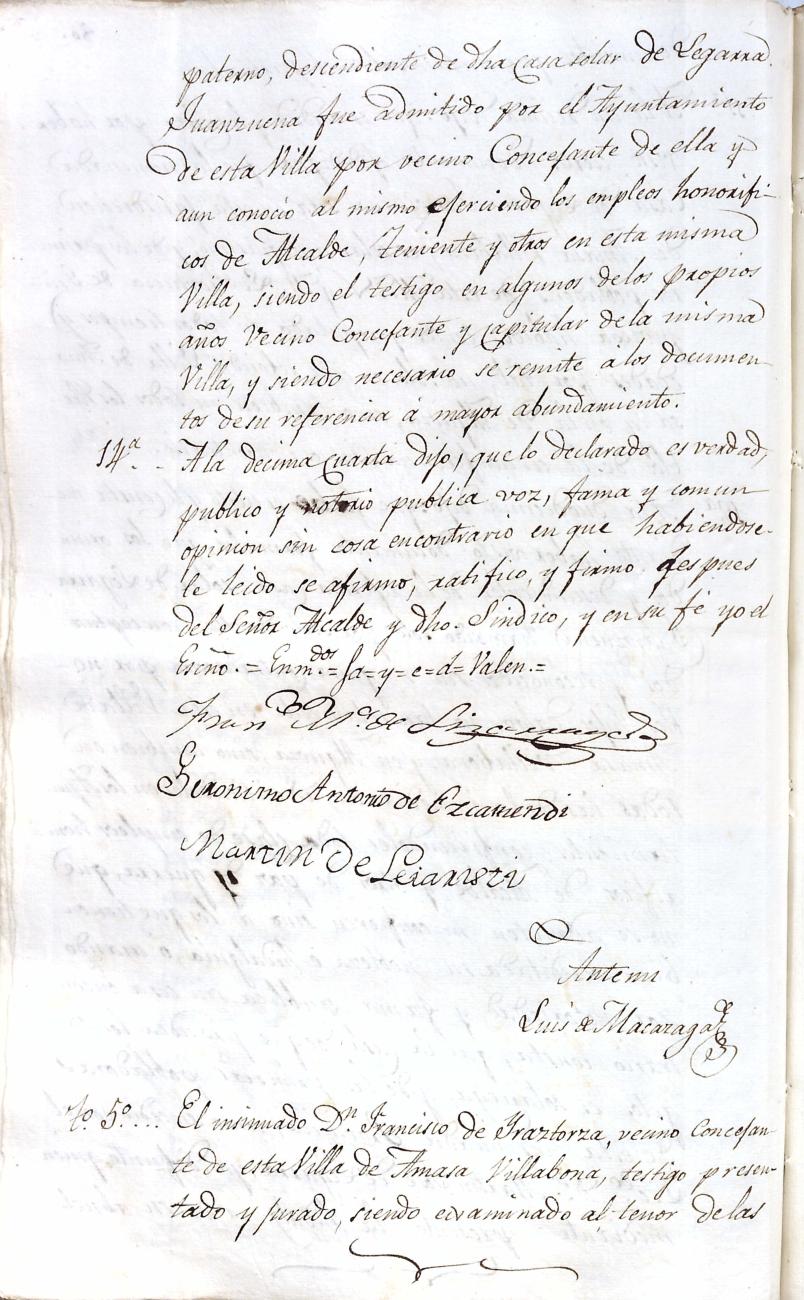 paterno, descendiente de dha casa solar de Legarra
Juanzuena fue admitido por el Ayuntamiento
de esta Villa por vecino Concejante de ella y
aun conocio al mismo ejerciendo los empleos honorifi-
cos de Alcalde, teniente y otros en esta misma
Villa, siendo el testigo en algunos delos propios
años Vecino Concejante y capitular dela misma
Villa, y siendo necesario se remite a los documen-
tos desu referencia á mayor abundamiento.
14ª.. A la decima cuarta dijo, que lo declarado es verdad,
publico y notorio publica voz, fama y comun
opinion sin cosa encontrario en que habiendose-
le leido se afirmo, ratifico, y firmo despues
del Señor Alcalde y dho. Sindico, y en su fé yo el
Escño. = Enm.dos = ja=y=e=d= Valen.=
Fran.co M.a de Lizarraga
Geronimo Antonio de Ezcamendi
Martin De Legaristi
Antemi
Luis de Macazaga
to. 5º... El insinuado Dn. Francisco de Yraztorza, vecino Concejan-
te de esta Villa de Amasa Villabona, testigo presen-
tado y jurado, siendo examinado al tenor de las